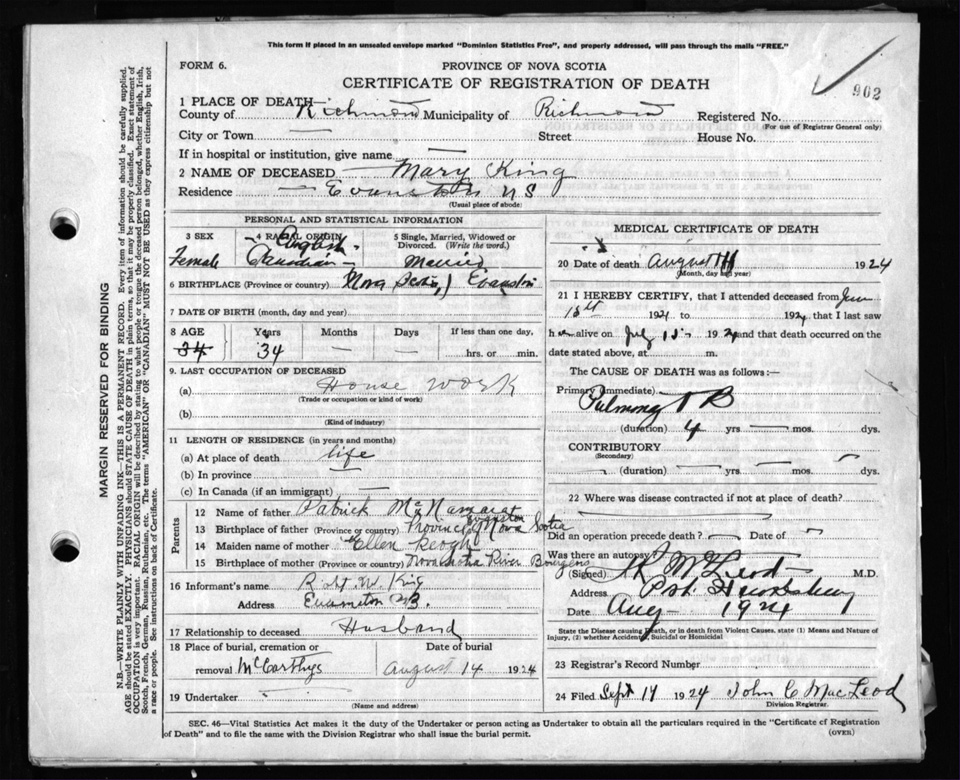 This form if placed in an unsealed envelope marked "Dominion Statistics Free", and properly addressed, will pass through the mails "FREE."
FORM 6.
PROVINCE OF NOVA SCOTIA
CERTIFICATE OF REGISTRATION OF DEATH
902
1 PLACE OF DEATH—
County of Richmond Municipality of Richmond Registered No.
(For use of Registrar General only)
City or Town — Street House No.
If in hospital or institution, give name —
2 NAME OF DECEASED Mary King
Residence Evanston NS
(Usual place of abode)
PERSONAL AND STATISTICAL INFORMATION
3 SEX
Female
4 RACIAL ORIGIN
English
Canadian
5 Single, Married, Widowed or Divorced. (Write the word.)
Married
6 BIRTHPLACE (Province or country) Nova Scotia, Evanston
7 DATE OF BIRTH (month, day and year)
8 AGE Years Months Days If less than one day,
34 34 — — hrs. or min.
9. LAST OCCUPATION OF DECEASED
(a) House work
(Trade or occupation or kind of work)
(b)
(Kind of industry)
11 LENGTH OF RESIDENCE (in years and months)
(a) At place of death life
(b) In province —
(c) In Canada (if an immigrant) —
Parents
12 Name of father Patrick McNamara
Evanston
13 Birthplace of father (Province or country) Province of Nova Scotia
14 Maiden name of mother Ellen Keogh
15 Birthplace of mother (Province or country) Nova Scotia River Bourgeois
16 Informant's name Robt W. King
Address Evanston N.S.
17 Relationship to deceased Husband
18 Place of burial, cremation or Date of burial
removal McCarthys August 14 1924
19 Undertaker
(Name and address)
MEDICAL CERTIFICATE OF DEATH
20 Date of death August 1924
(Month, day and year)
21 I HEREBY CERTIFY, that I attended deceased from June
15th 1921 to 1924 that I last saw
h er alive on July 15 1924 and that death occurred on the
date stated above, at m.
The CAUSE OF DEATH was as follows:—
Primary (Immediate)
Pulmonary T B
(duration) 4 yrs — mos. dys.
CONTRIBUTORY
(Secondary)
(duration) — yrs — mos. dys.
22 Where was disease contracted if not at place of death?
Did an operation precede death?
Was there an autopsy?
(Signed) McLeod M.D.
Address Port Hawkesbury
Date Aug 1924
State the Disease causing Death, or in death from Violent Causes, state (1) Means and Nature of
Injury, (2) whether Accidental, Suicidal or Homicidal
23 Registrar's Record Number
24 Filed Sept 17 1924 John C MacLeod
Division Registrar.
SEC. 46—Vital Statistics Act makes it the duty of the Undertaker or person acting as Undertaker to obtain all the particulars required in the "Certificate of Registration
of Death" and to file the same with the Division Registrar who shall issue the burial permit.
(OVER)
MARGIN RESERVED FOR BINDING
N.B.—WRITE PLAINLY WITH UNFADING INK—THIS IS A PERMANENT RECORD. Every item of information should be carefully supplied.
AGE should be stated EXACTLY. PHYSICIANS should STATE CAUSE OF DEATH in plain terms, so that it may be properly classified. Exact statement of
OCCUPATION is very important. RACIAL ORIGIN will be described by stating to what people or tongue the deceased person belonged, whether English, Irish,
Scotch, French, German, Russian, Ruthenian, etc. The terms "AMERICAN" OR "CANADIAN" MUST NOT BE USED as they express citizenship but not
a race or people. See instructions on back of Certificate.